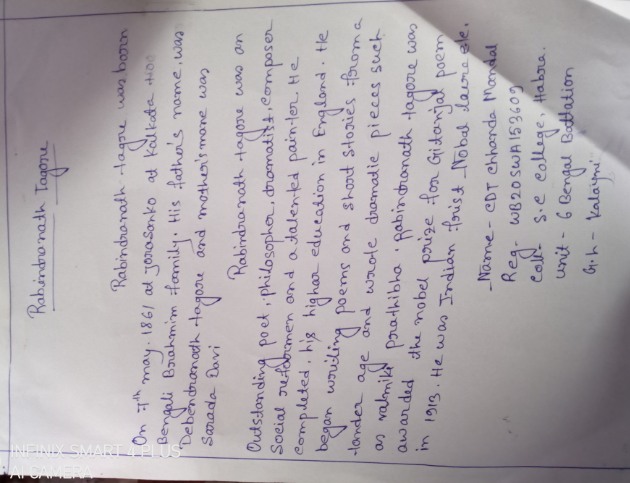 Rabindranath Tagore
Rabindranath tagore was born
On 7th may. 1861 at Jorasanko at Kolkata
Bengali Brahmim family. His father's name, was
Debendranath tagore and mother's mane was
Sarada Davi
Rabindranath tagore was an
Outstanding poet, philosopher, dramatist, composer
Social reformen and a talented painter. He
completed. his higher education in England. He
began writing poems and short stories from a
tander age and wrote dramatic pieces such
as valmiki prathibha. Rabindranath tagore was
awarded the nobel prize for Gitanjal poem
in 1913. He was Indian frist Nobal laureate.
Name - CDT Chhanda Mandal
Reg - WB20SWA153609
Coll - S.C College, Habra.
unit - 6 Bengal Battation
G.h - Kalaijni
INFINIX SMART 4 PLUS
AI CAMERA